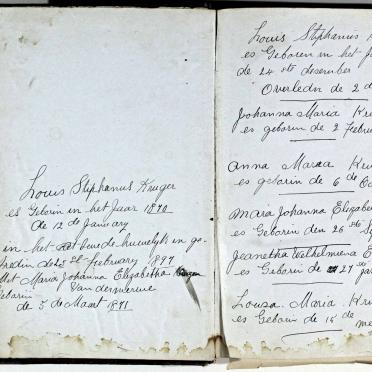 Louis Stephanus Kruger
es Geborin in het Jaar 1870
de 12 de January
in het huwelijk in ge
tredin de 3 de February 1897
Met Maria Johanna Elizabetha
Geborin Van der merwe
de 3 de Maart 1871
Louis Stephanus
es Geboren in het
de 24 ste desember
Overledn de 2 d
Johanna Maria Kru
es geborin de 2 Febru
Anna Maria Kru
es geborin de 6 de Oc
Maria Johanna Elizabe
es Geboren den 26 ste
Jeanetha Welhelmiena E
es Geborin de 27 ste
Louisa Maria Kr
es Geboren de 18 de